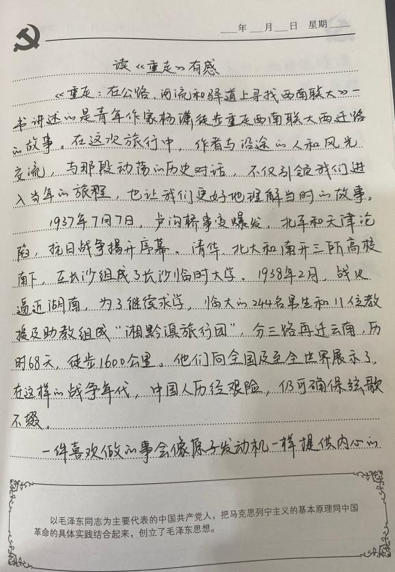 年 月 日 星期
读《重走》有感
《重走:在公路、河流和驿道上寻找西南联大》一
书讲述的是青年作家杨潇徒步重走西南联大西迁路
的故事。在这次旅行中,作者与沿途的人和风光
交流,与那段动荡的历史对话,不仅引领我们进
入当年的旅程,也让我们更好地理解当时的故事。
1937年7月7日,卢沟桥事变爆发,北平和天津沦
陷,抗日战争揭开序幕。清华、北大和南开三所高校
南下,在长沙组成了长沙临时大学。1938年2月,战火
逼近湖南,为了继续求学,临大的244名男生和11位教
授及助教组成“湘黔滇旅行团”,分三路再迁云南,历
时68天,徒步1600公里。他们向全国及至全世界展示了,
在这样的战争年代,中国人历经艰险,仍可确保弦歌
不辍。
一件喜欢做的事会像原子发动机一样提供内心的
以毛泽东同志为主要代表的中国共产党人,把马克思列宁主义的基本原理同中国
革命的具体实践结合起来,创立了毛泽东思想。